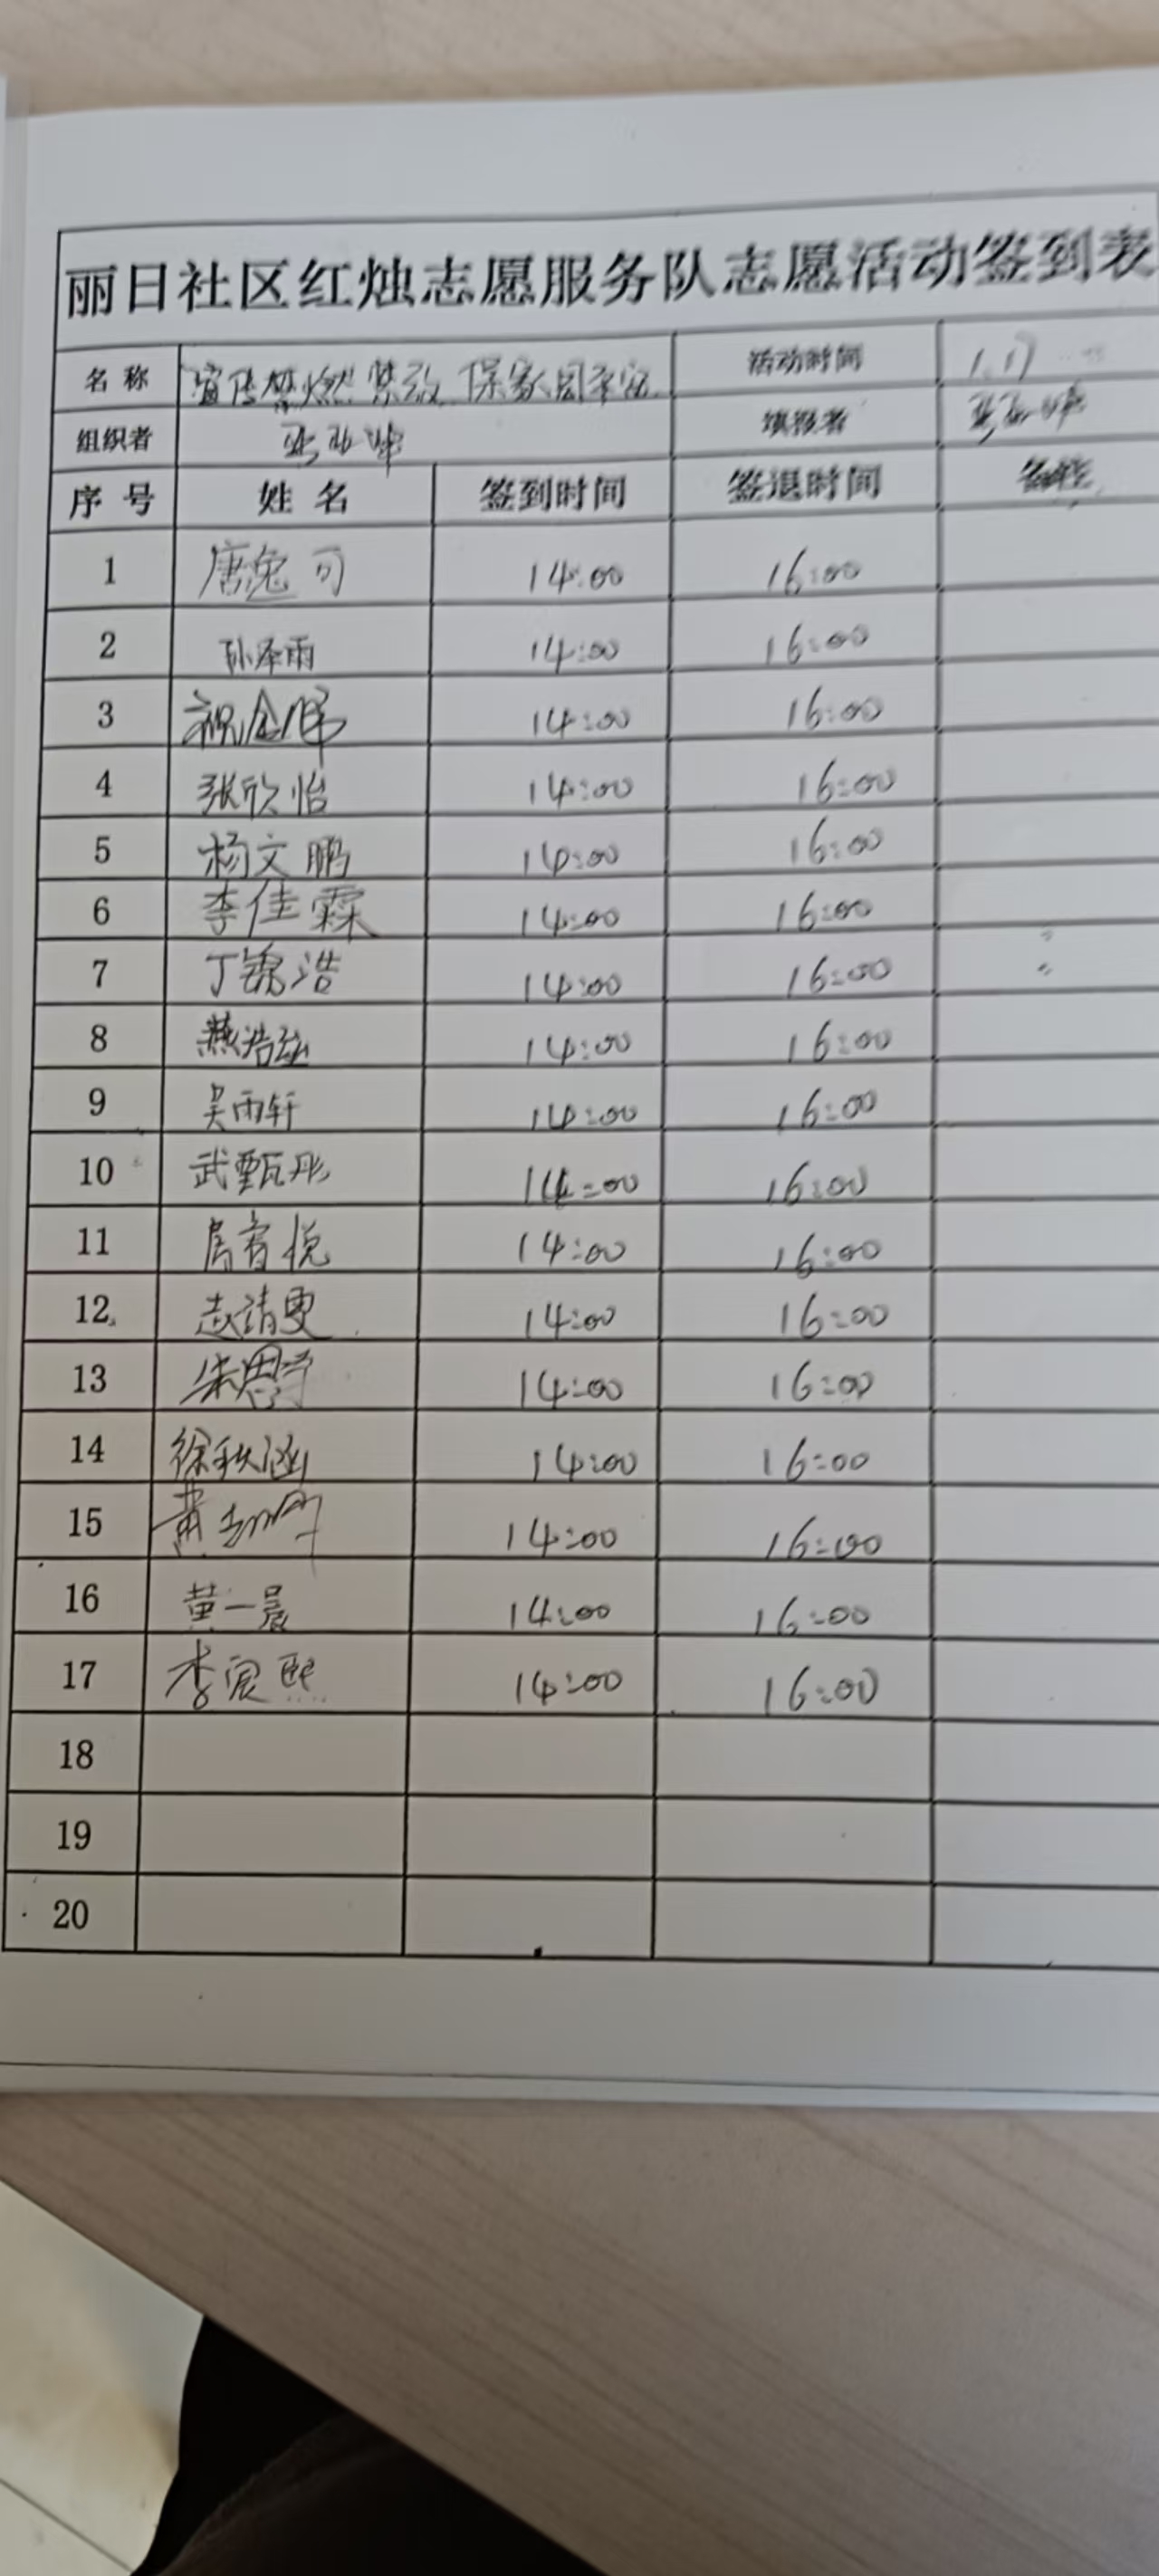 丽日社区红烛志愿服务队志愿活动签到表
名称 宣传禁燃禁放 保家园平安 活动时间 1.17
组织者 填报者
序号 姓名 签到时间 签退时间 备注
1 唐逸可 14:00 16:00
2 孙泽雨 14:00 16:00
3 祝金 14:00 16:00
4 张欣怡 14:00 16:00
5 杨文鹏 14:00 16:00
6 李佳霖 14:00 16:00
7 丁锦浩 14:00 16:00
8 燕浩 14:00 16:00
9 吴雨轩 14:00 16:00
10 武甄彤 14:00 16:00
11 悦 14:00 16:00
12 赵靖雯 14:00 16:00
13 朱 14:00 16:00
14 徐秋涵 14:00 16:00
15 黄 14:00 16:00
16 黄一晨 14:00 16:00
17 李宸熙 14:00 16:00
18
19
20